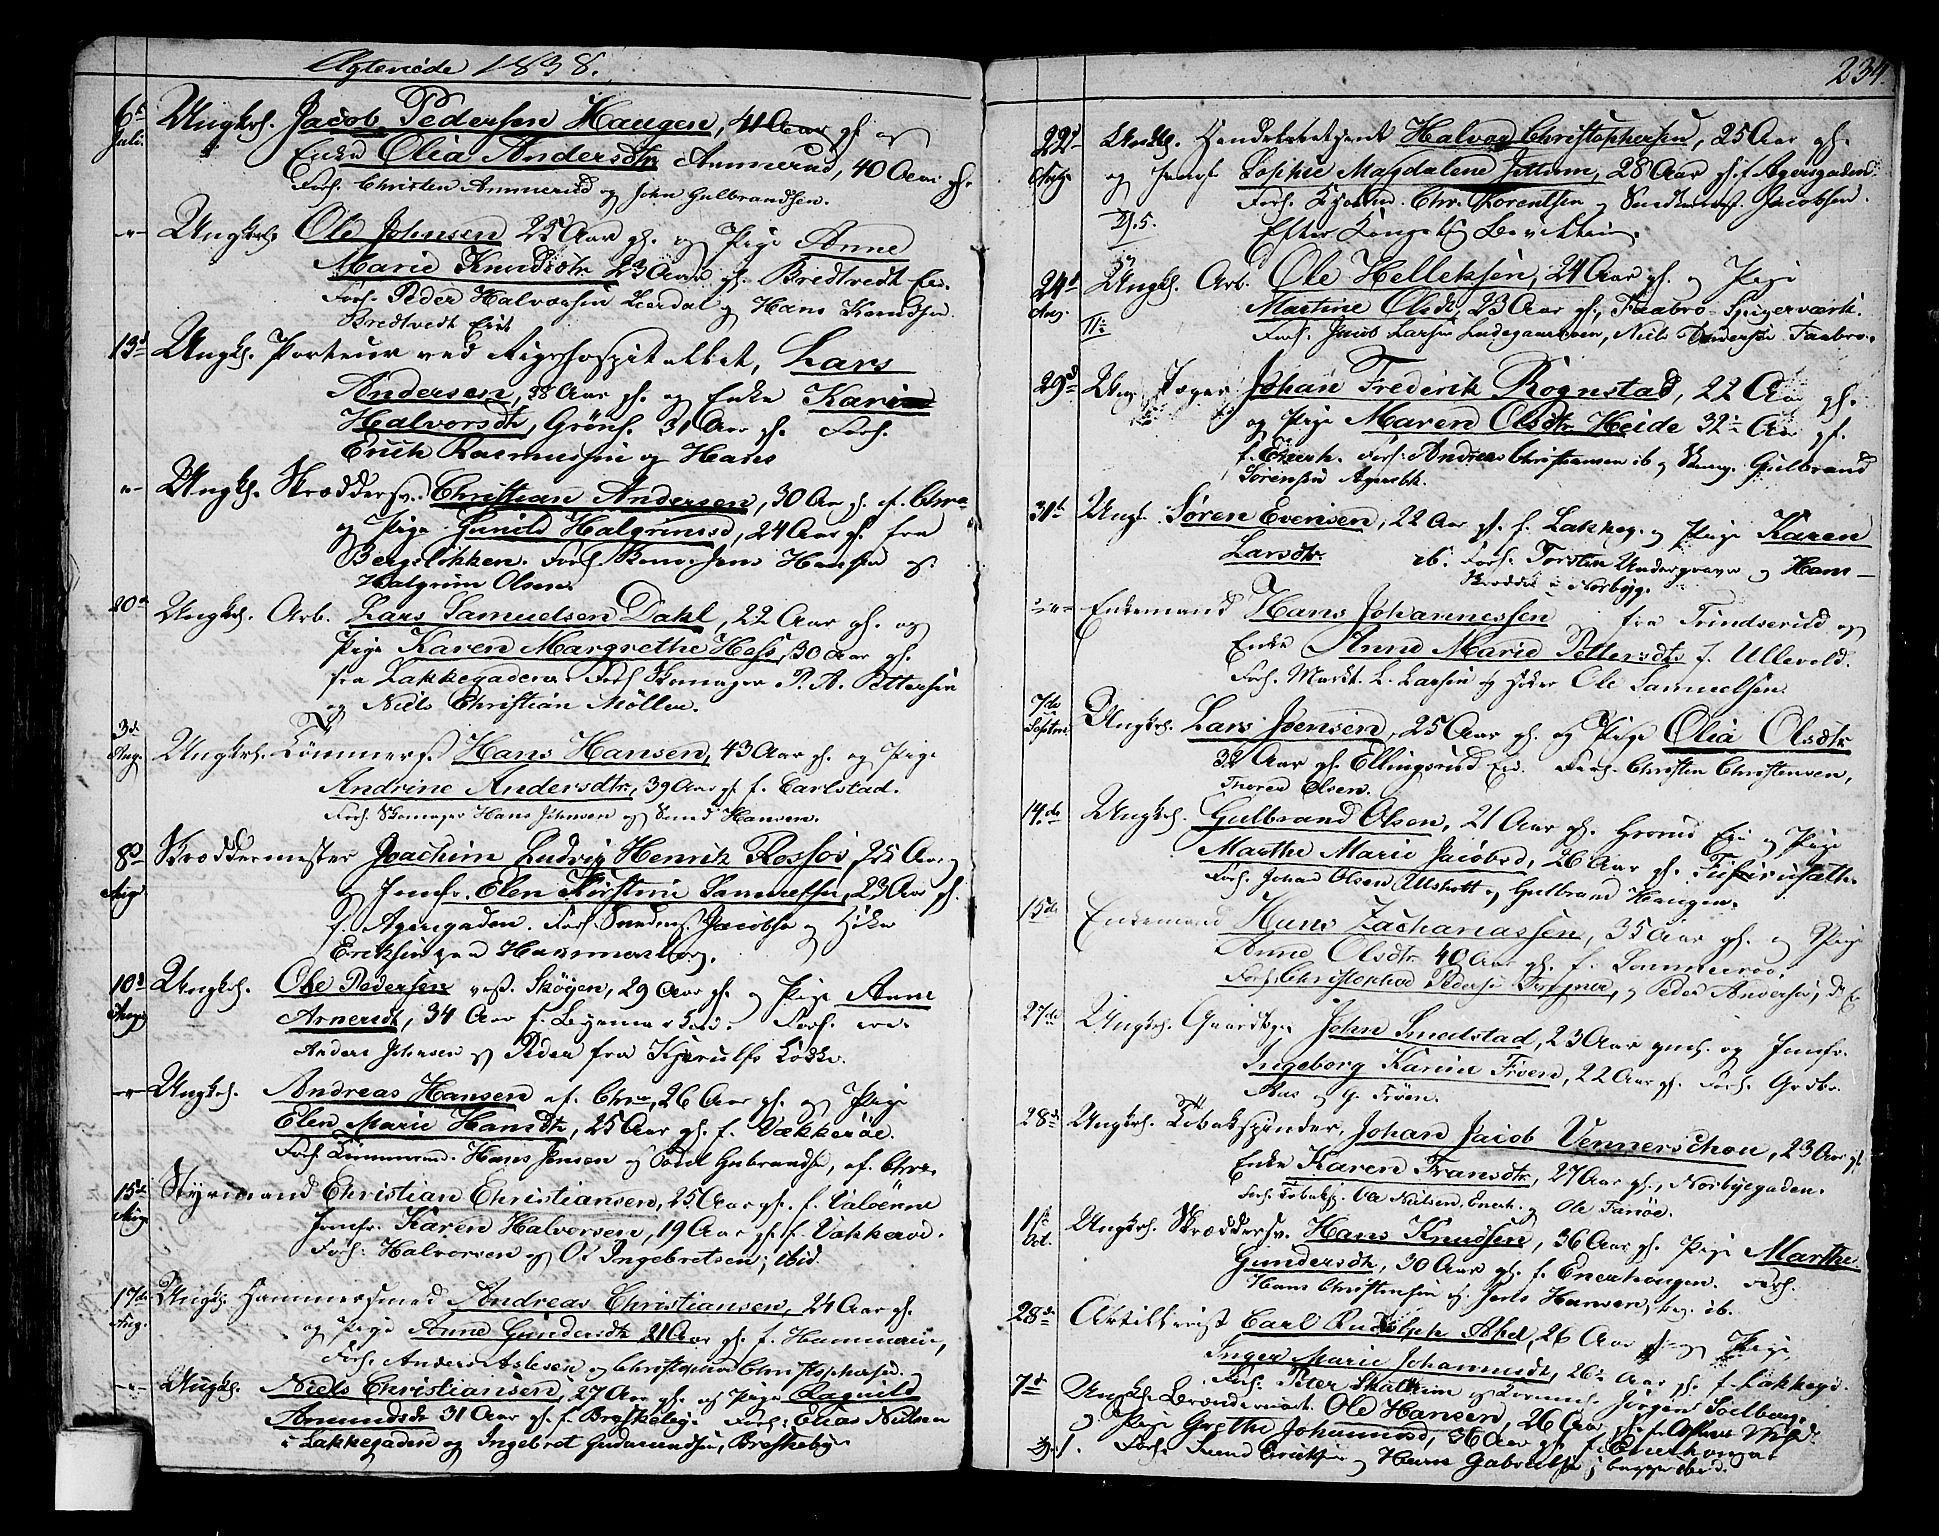 Ægteviede 1838.
6te Juli. Ungkrl. Jacob Pedersen Haugen, 41 Aar gl. og
Enke Olia Andersdtr Ammerud, 40 Aar gl.
Forl. Christen Ammerud og John Gulbrandsen.
-"- Ungkrl. Ole Johnsen 25 Aar gl. og Pige Anne
Marie Knudsdtr 23 Aar gl. Bredtvedt Eie.
Forl. Peder Halvorsen og Hans Knudsen
Bredtvedt Eie
13de Ungkl. Porteur ved Rigshospitalet, Lars
Andersen, 38 Aar gl. og Enke Kari
Halvorsdtr, Grønl. 31 Aar gl. Forl.
Erich Rasmussen og Hans
-"- Ungkl. Skræddersv. Christian Andersen, 30 Aar gl. af Chra
og Pige Gunild Halgrimsd, 24 Aar gl. fra
Bergsløkken. Forl. Jens Hansen og
Halgrim Olsen.
20de Ungkrl. Arb. Lars Samuelsen Dahl, 22 Aar gl. og
Pige Karen Margrethe Hess, 30 Aar gl.
fra Lakkegaden. Forl. Skomager P. A. Pettersen
og Niels Christian Möller.
3de Aug. Ungkrl. Tömmers. Hans Hansen, 43 Aar gl. og Pige
Andrine Andersdtr, 39 Aar gl. f. Carlstad.
Forl. Skomager Hans Johnsen og Hansen.
8de Aug. Skræddermester Joachim Ludvig Henrik Rossov, 25 Aar
og Jomfr. Elen Kirstine Sammelsen, 23 Aar gl.
f. Agersgaden. Forl. Jacobsen og Höker
Eriksen paa Hammersborg.
10de Aug. Ungkrl. Ole Pedersen vest. Skøyen, 29 Aar gl. og Pige Anne
Arnersdtr, 34 Aar f. Forl.
Anders Johnsen og Peder fra Kjerulfs Løkke.
-"- Ungkrl. Andreas Hansen af Chra, 26 Aar gl. og Pige
Elen Marie Hansdtr, 25 Aar gl. f. Vækkerøe.
Forl. Tømmermd. Hans Jensen og Gulbrandsen, af Chra.
15de Aug. Styrmand Christian Christiansen, 25 Aar gl. f. Valöerne
Jomfr. Karen Halvorsen, 19 Aar gl. f. Vakkeroe.
Forl. Halvorsen og O. Ingebretsen, ibid.
17de Aug. Ungkl. Hammersmed Andreas Christiansen, 24 Aar gl.
og Pige Anne Gundersdtr 21 Aar gl. f. Hammeren,
Forl. Anders Aslesen og Christopher Christophersen.
-"- Ungkl. Niels Christiansen, 27 Aar gl. og Pige Ragnild
Amundsdr 31 Aar gl. f. Breskeby. Forl. Elias Nielsen
i Lakkegaden og Ingebret Gudmundsen, Breskeby
234.
22de Aug. Halvor Christophersen, 25 Aar gl.
og Jomfr. Sophie Magdalene, 28 Aar gl. f. Agersgaden
Forl. Kjøbm. Chr. Lorentsen og Jacobsen.
Efter Kongelig Bevilling.
24de Aug. Ungkl. Arb. Ole Helleksen, 24 Aar gl. og Pige
Martine Olsdtr, 23 Aar gl., Faabro Spigerværk.
Forl. Jacob Larsen, Niels Faabro.
29de Johan Frederik Rognstad, 22 Aar gl.
og Pige Maren Olsdtr Heide 32 Aar gl.
f. Enerh. Forl. Andreas Christiansen ib og Gulbrand
Sörensen
31te Ungk. Søren Evensen, 22 Aar gl. f. Lakkeg. og Pige Karen
Larsdtr. ib. Forl. Torsten og Hans
Skrædder i Norbyg.
-"- Enkemand Hans Johannessen fra Trindserud og
Enke Anne Marie Pettersdtr f. Ullevold.
Forl. L. Larsen og Höker Ole Samuelsen.
7de Septbr. Ungkrl. Lars Jensen, 25 Aar gl. og Pige Olia Olsdtr
32 Aar gl. Ellingsrud Eie. Forl. Christen Christensen,
Thored Olsen.
14de Ungkrl. Gulbrand Olsen, 21 Aar gl. Grorud Eie og Pige
Marthe Marie Jacobsd, 26 Aar gl.
Forl. Johan Olsen Ulsholt og Gulbrand Haugen.
15de Enkemand Hans Zachariassen, 35 Aar gl. og Pige
Anne Olsdtr 40 Aar gl. f. Sommeroe.
Forl. Christopher Pedersen og Peder Andersen,
27de Ungkrl. John Smedstad, 23 Aar gml. og Jomfr.
Ingeborg Karine Fröen, 22 Aar gl. Forl. Grdbr.
og G. Fröen.
28de Ungkrl. Tobakspinder, Johan Jacob Vennerschou, 23 Aar gl.
Enke Karen Fransdtr, 27 Aar gl., Norbyegaden.
Forl. Tobaksp. Nielsen, Enerh. og Ole
1ste Oct. Ungkrl. Skræddersv. Hans Knudsen, 36 Aar gl. Pige Marthe
Gundersdtr, 30 Aar gl. f. Enerhougen. Forl.
Hans Christensen og Jens Hansen, beg. ib.
28de Artillerist Carl Rudolph Abel, 26 Aar gl. og Pige
Inger Marie Johannesdtr, 26 Aar gl. f. Lakkegd.
Forl. Peter og Jörgen Soelberg.
7de Ungkl. Ole Hansen, 26 Aar gl. f.
og Pige Grethe Johannesd, 36 Aar gl. f. Enerhouget
Forl. Eriksen og Hans Gabrielsen, begge ibid.